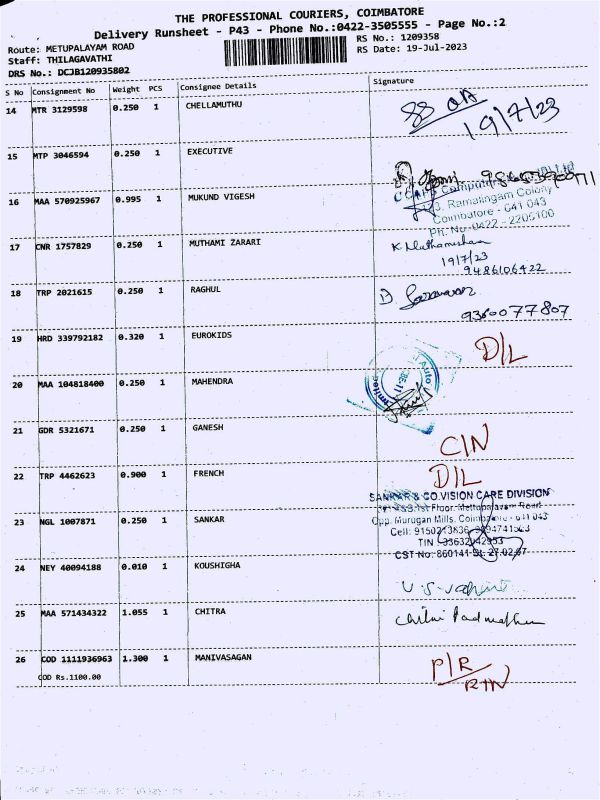 THE PROFESSIONAL COURIERS, COIMBATORE
Delivery Runsheet - P43 - Phone No.:0422-3505555 - Page No.:2
Route: METUPALAYAM ROAD RS No.: 1209358
Staff: THILAGAVATHI RS Date: 19-Jul-2023
DRS No.: DCJB120935802
S No Consignment No Weight PCS Consignee Details Signature
14 MTR 3129598 0.250 1 CHELLAMUTHU
19/7/23
15 MTP 3046594 0.250 1 EXECUTIVE
16 MAA 570925967 0.995 1 MUKUND VIGESH
Ramalingam Colony
Coimbatore - 641 043
PH: No-0422 - 2205100
17 CNR 1757829 0.250 1 MUTHAMI ZARARI
19/7/23
9486106422
18 TRP 2021615 0.250 1 RAGHUL
9360077807
19 HRD 339792182 0.320 1 EUROKIDS D/L
20 MAA 104818400 0.250 1 MAHENDRA
Auto
21 GDR 5321671 0.250 1 GANESH C/N
22 TRP 4462623 0.900 1 FRENCH D/L
SANKAR & CO.VISION CARE DIVISION
1st Floor, Mettupalayam Road
Opp. Murugan Mills, Coimbatore - 641 043
23 NGL 1007871 0.250 1 SANKAR
Cell: 9150213836,
TIN : 33632742953
CST No: 860141 Dt. 27.02.67
24 NEY 40094188 0.010 1 KOUSHIGHA
25 MAA 571434322 1.055 1 CHITRA
26 COD 1111936963 1.300 1 MANIVASAGAN P/R
COD Rs.1100.00 RTN